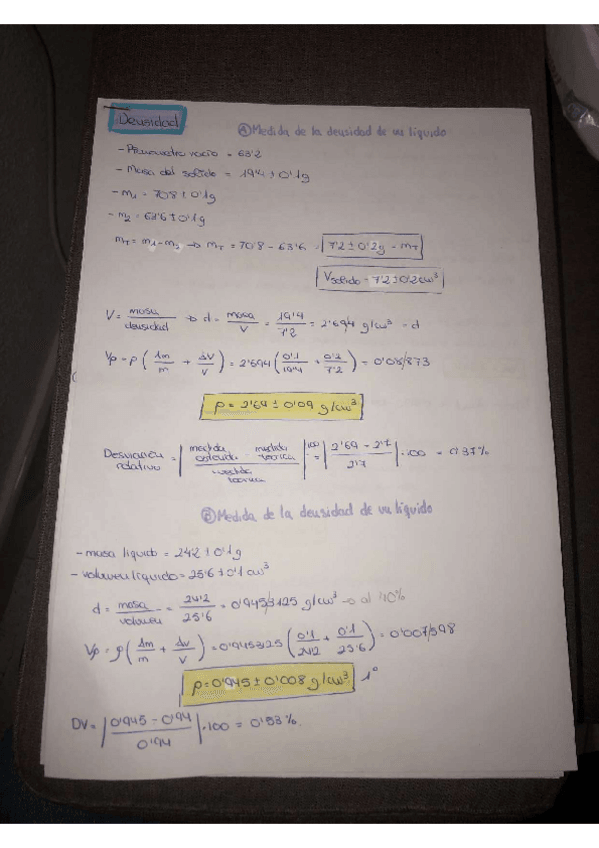 Densidad
Ⓐ Medida de la densidad de un líquido
- Picnómetro vacío = 63'2
- Masa del sólido = 19'4 ± 0'1g
- m1 = 70'8 ± 0'1g
- m2 = 63'6 ± 0'1g
mT = m1 - m2 → mT = 70'8 - 63'6 = 7'2 ± 0'2g = mT
Vsólido = 7'2 ± 0'2 cm³
V = masa / densidad → d = masa / V = 19'4 / 7'2 = 2'694 g/cm³ = d
∇ρ = ρ ( Δm / m + ΔV / V ) = 2'694 ( 0'1 / 19'4 + 0'2 / 7'2 ) = 0'08/873
ρ = 2'69 ± 0'09 g/cm³
Desviación relativa = | medida obtenida - medida teórica / medida teórica | · 100 = | 2'69 - 2'7 / 2'7 | · 100 = 0'37%
Ⓑ Medida de la densidad de un líquido
- masa líquido = 24'2 ± 0'1g
- volumen líquido = 25'6 ± 0'1 cm³
d = masa / volumen = 24'2 / 25'6 = 0'945/3125 g/cm³ → al 40%
∇ρ = ρ ( Δm / m + ΔV / V ) = 0'9453125 ( 0'1 / 24'2 + 0'1 / 25'6 ) = 0'007/598
ρ = 0'945 ± 0'008 g/cm³ 1º
DV = | 0'945 - 0'94 / 0'94 | · 100 = 0'53%